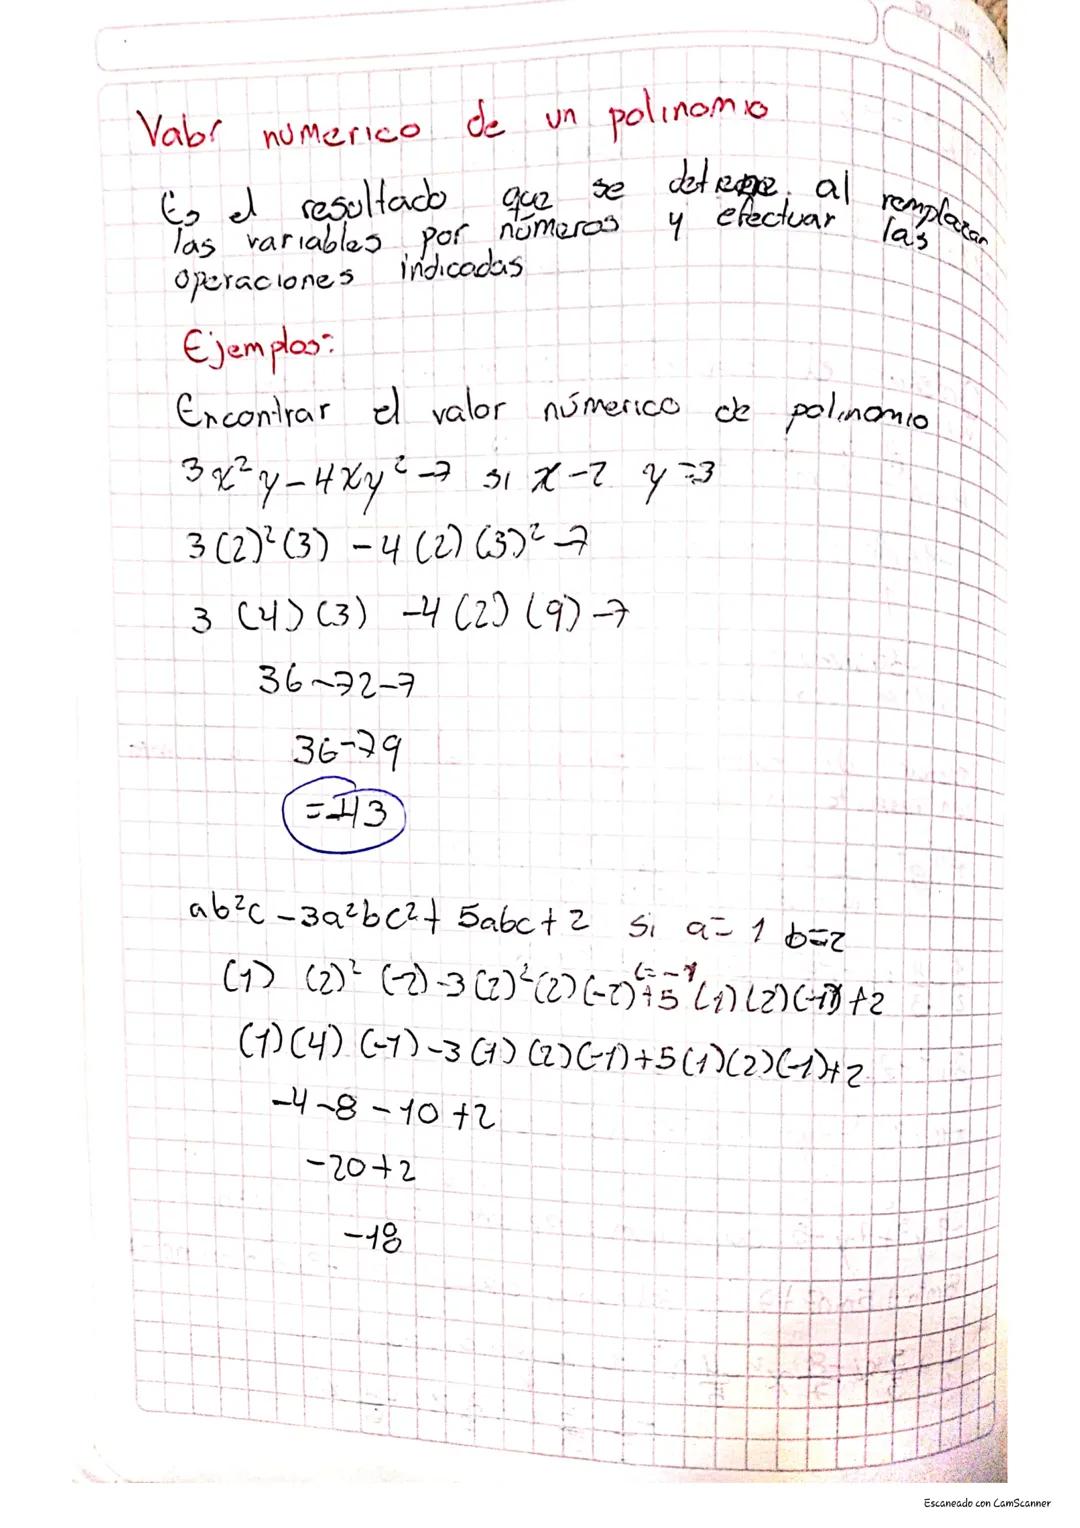 Valor numerico de un polinomio
Es el resultado que se al remplazar
las variables por números y efectuar las
operaciones indicadas
Ejemplos:
Encontrar el valor númerico de polinomio
3x²y-4xy²-7 si x-2 y=3
3(2)²(3) -4(2)(3)²-7
3 (4)(3) -4(2)(9)-7
36-72-7
36-79
=-43
ab²c-3a²bc²+5abc+2 si a=1 b=2
c=-1
(1) (2)² (-2)-3(2)²(2)(-2)+5(1)(2)(-1)+2
(1)(4)(-1)-3(1)(2)(-1)+5(1)(2)(-1)+2
-4-8-10+2
-20+2
-18
Escaneado con CamScanner